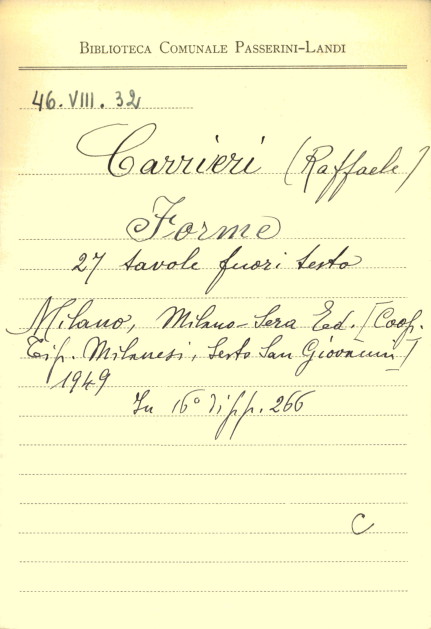 BIBLIOTECA COMUNALE PASSERINI-LANDI
46.VIII.32
Carrieri (Raffaele)
Forme
27 tavole fuori testo
Milano, Milano-Sera Ed. [Coop.
Tip. Milanesi, Sesto San Giovanni]
1949
In 16° di pp. 266
C